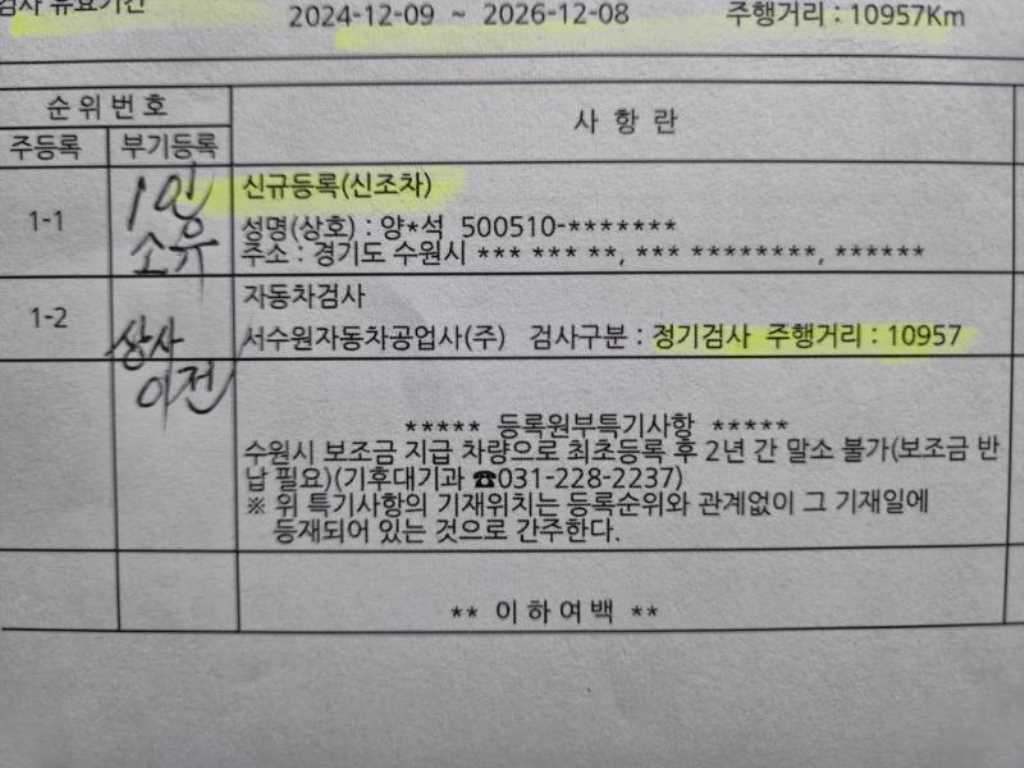 검사 유효기간 2024-12-09 ~ 2026-12-08 주행거리 : 10957Km
순위번호 사 항 란
주등록 부기등록
1-1 1인 소유 신규등록(신조차)
성명(상호) : 양*석 500510-*******
주소 : 경기도 수원시 *** *** **, *** ********, ******
1-2 상사 이전 자동차검사
서수원자동차공업사(주) 검사구분 : 정기검사 주행거리 : 10957
***** 등록원부특기사항 *****
수원시 보조금 지급 차량으로 최초등록 후 2년 간 말소 불가(보조금 반
납 필요)(기후대기과 ☎031-228-2237)
※ 위 특기사항의 기재위치는 등록순위와 관계없이 그 기재일에
등재되어 있는 것으로 간주한다.
** 이 하 여 백 **